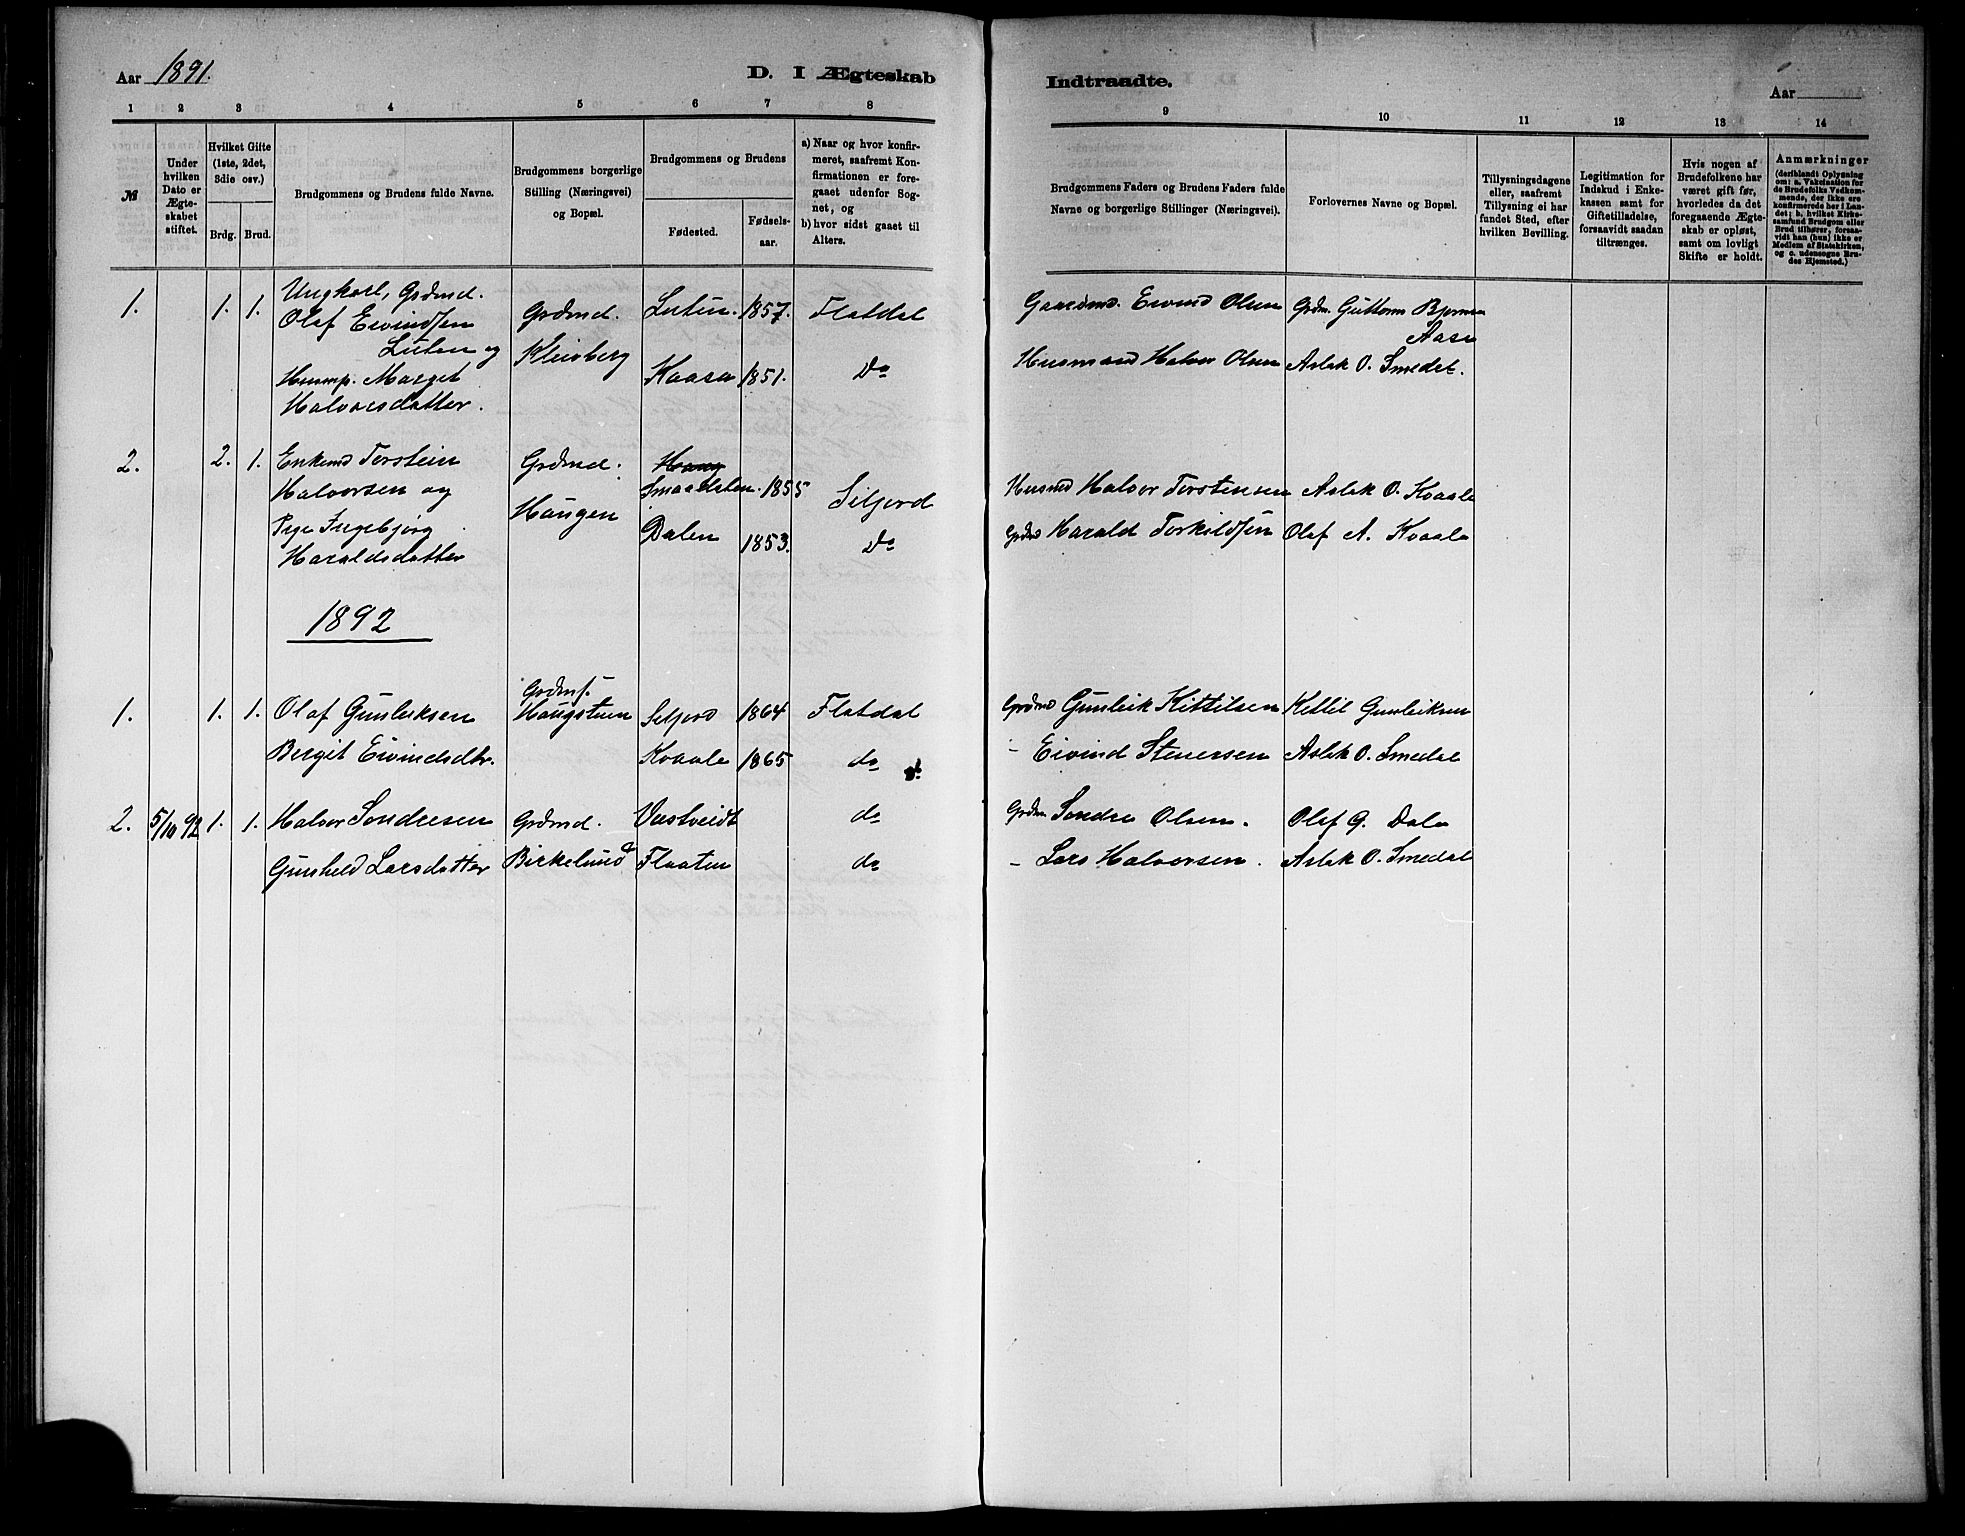 Aar 1891.
D. I Ægteskab
1 2 3 4 5 6 7 8
M
Under hvilken Dato er Ægteskabet stiftet.
Hvilket Gifte (1ste, 2det, 3die osv.)
Brdg. Brud.
Brudgommens og Brudens fulde Navne.
Brudgommens borgerlige Stilling (Næringsvei) og Bopæl.
Brudgommens og Brudens
Fødested.
Fødselsaar.
a) Naar og hvor konfirmeret, saafremt Konfirmationen er foregaaet udenfor Sognet, og
b) hvor sidst gaaet til Alters.
1. 1. 1. Ungkarl, Grdmd.
Olaf Eivindsen
og
Grdmd. 1857. Flatdal
Kleivberg
Halvorsdatter. Kaasa 1851. Do
2. 2. 1. Enkemd Torstein
Halvorsen og
Pige Ingebjørg
Haraldsdatter
Grdmd.
Haugen
1855 Siljord
Dalen 1853. Do
1892
1. 1. 1. Olaf Gunleiksen Haugstuen Siljord 1864 Flatdal
Bergit Eivindsdtr. Kvaale 1865 do
2. 5/10 92 1. 1. Halvor Sondresen Grdmd. Vastveidt do
Gunhild Larsdatter Birkelund Flaaten do
Indtraadte.
Aar
9 10 11 12 13 14
Brudgommens Faders og Brudens Faders fulde Navne og borgerlige Stillinger (Næringsvei).
Forlovernes Navne og Bopæl.
Tillysningsdagene eller, saafremt Tillysning ei har fundet Sted, efter hvilken Bevilling.
Legitimation for Indskud i Enkekassen samt for Giftetilladelse, forsaavidt saadan tiltrænges.
Hvis nogen af Brudefolkene har været gift før, hvorledes da det foregaaende Ægteskab er opløst, samt om lovligt Skifte er holdt.
Anmærkninger (deriblandt Oplysning om: a. Vakcination for de Brudefolks Vedkommende, der ikke ere konfirmerede her i Landet; b. hvilket Kirkesamfund Brudgom eller Brud tilhører, forsaavidt han (hun) ikke er Medlem af Statskirken, og c. udensogns Brudes Hjemsted.)
Gaardmd. Eivind Olsen Grdm. Guttorm Bjørnsen
Aase
Husmand Halvor Olsen Aslak O. Smedal.
Husmd Halvor Torstensen Aslak O. Kvaale
Grdmd Harald Torkildsen Olaf A. Kvaale
Grdmd Gunleik Kittilsen Kittil Gunleiksen
- Eivind Stenersen Aslak O. Smedal
Grdm Sondre Olsen. Olaf G. Dale
- Lars Halvorsen. Aslak O. Smedal